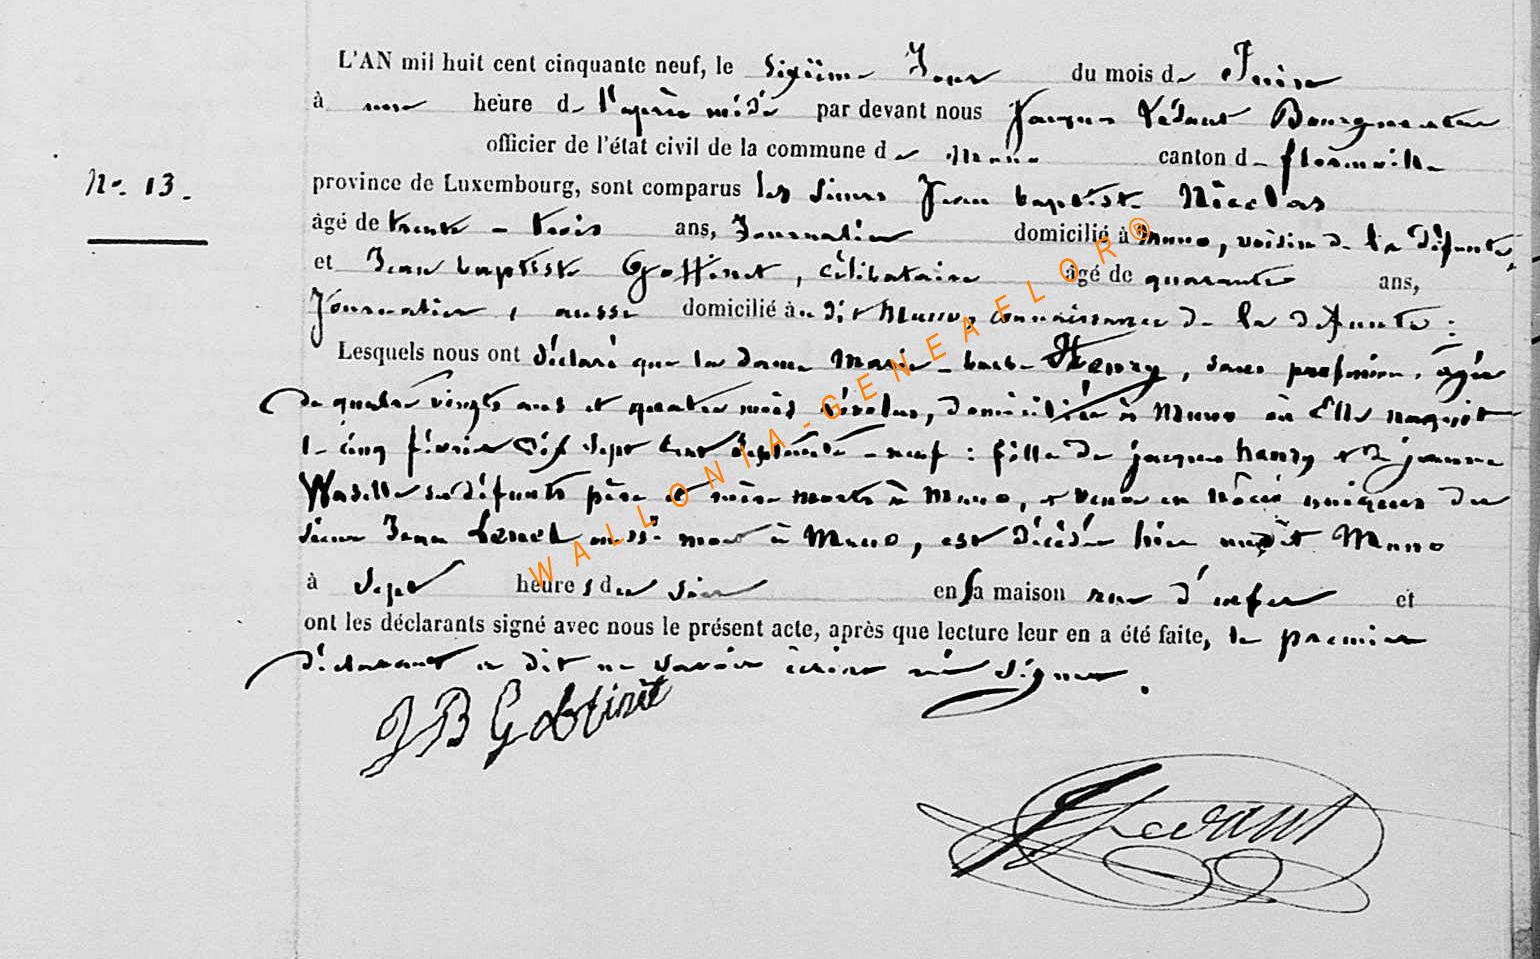 L'AN mil huit cent cinquante neuf, le sixième Jour du mois de Juin
à une heure de l'après midi par devant nous Jacques Lédant Bourgmestre
officier de l'état civil de la commune de Muno canton de florenville
No. 13.
province de Luxembourg, sont comparus les sieurs Jean baptiste Nicolas
âgé de trente-trois ans, Journalier domicilié à Muno, voisin de la défunte,
et Jean baptiste Goffinet, célibataire âgé de quarante ans,
Journalier, aussi domicilié au dit Muno, connaissance de la défunte :
Lesquels nous ont déclaré que la dame Marie-barbe Henry, sans profession, âgée
de quatre vingts ans et quatre mois révolus, domiciliée à Muno où Elle naquit
le cinq février dix sept cent septante-neuf : fille de jacques henry et de jeanne
ses défunts père et mère morts à Muno, et veuve en nôces uniques du
sieur Jean aussi mort à Muno, est décédée hier audit Muno
à sept heures du soir en sa maison rue d'enfer et
ont les déclarants signé avec nous le présent acte, après que lecture leur en a été faite, le premier
déclarant a dit ne savoir écrire ni signer.
JB Goffinet
Lédant
WALLONIA-GENEAELOR®